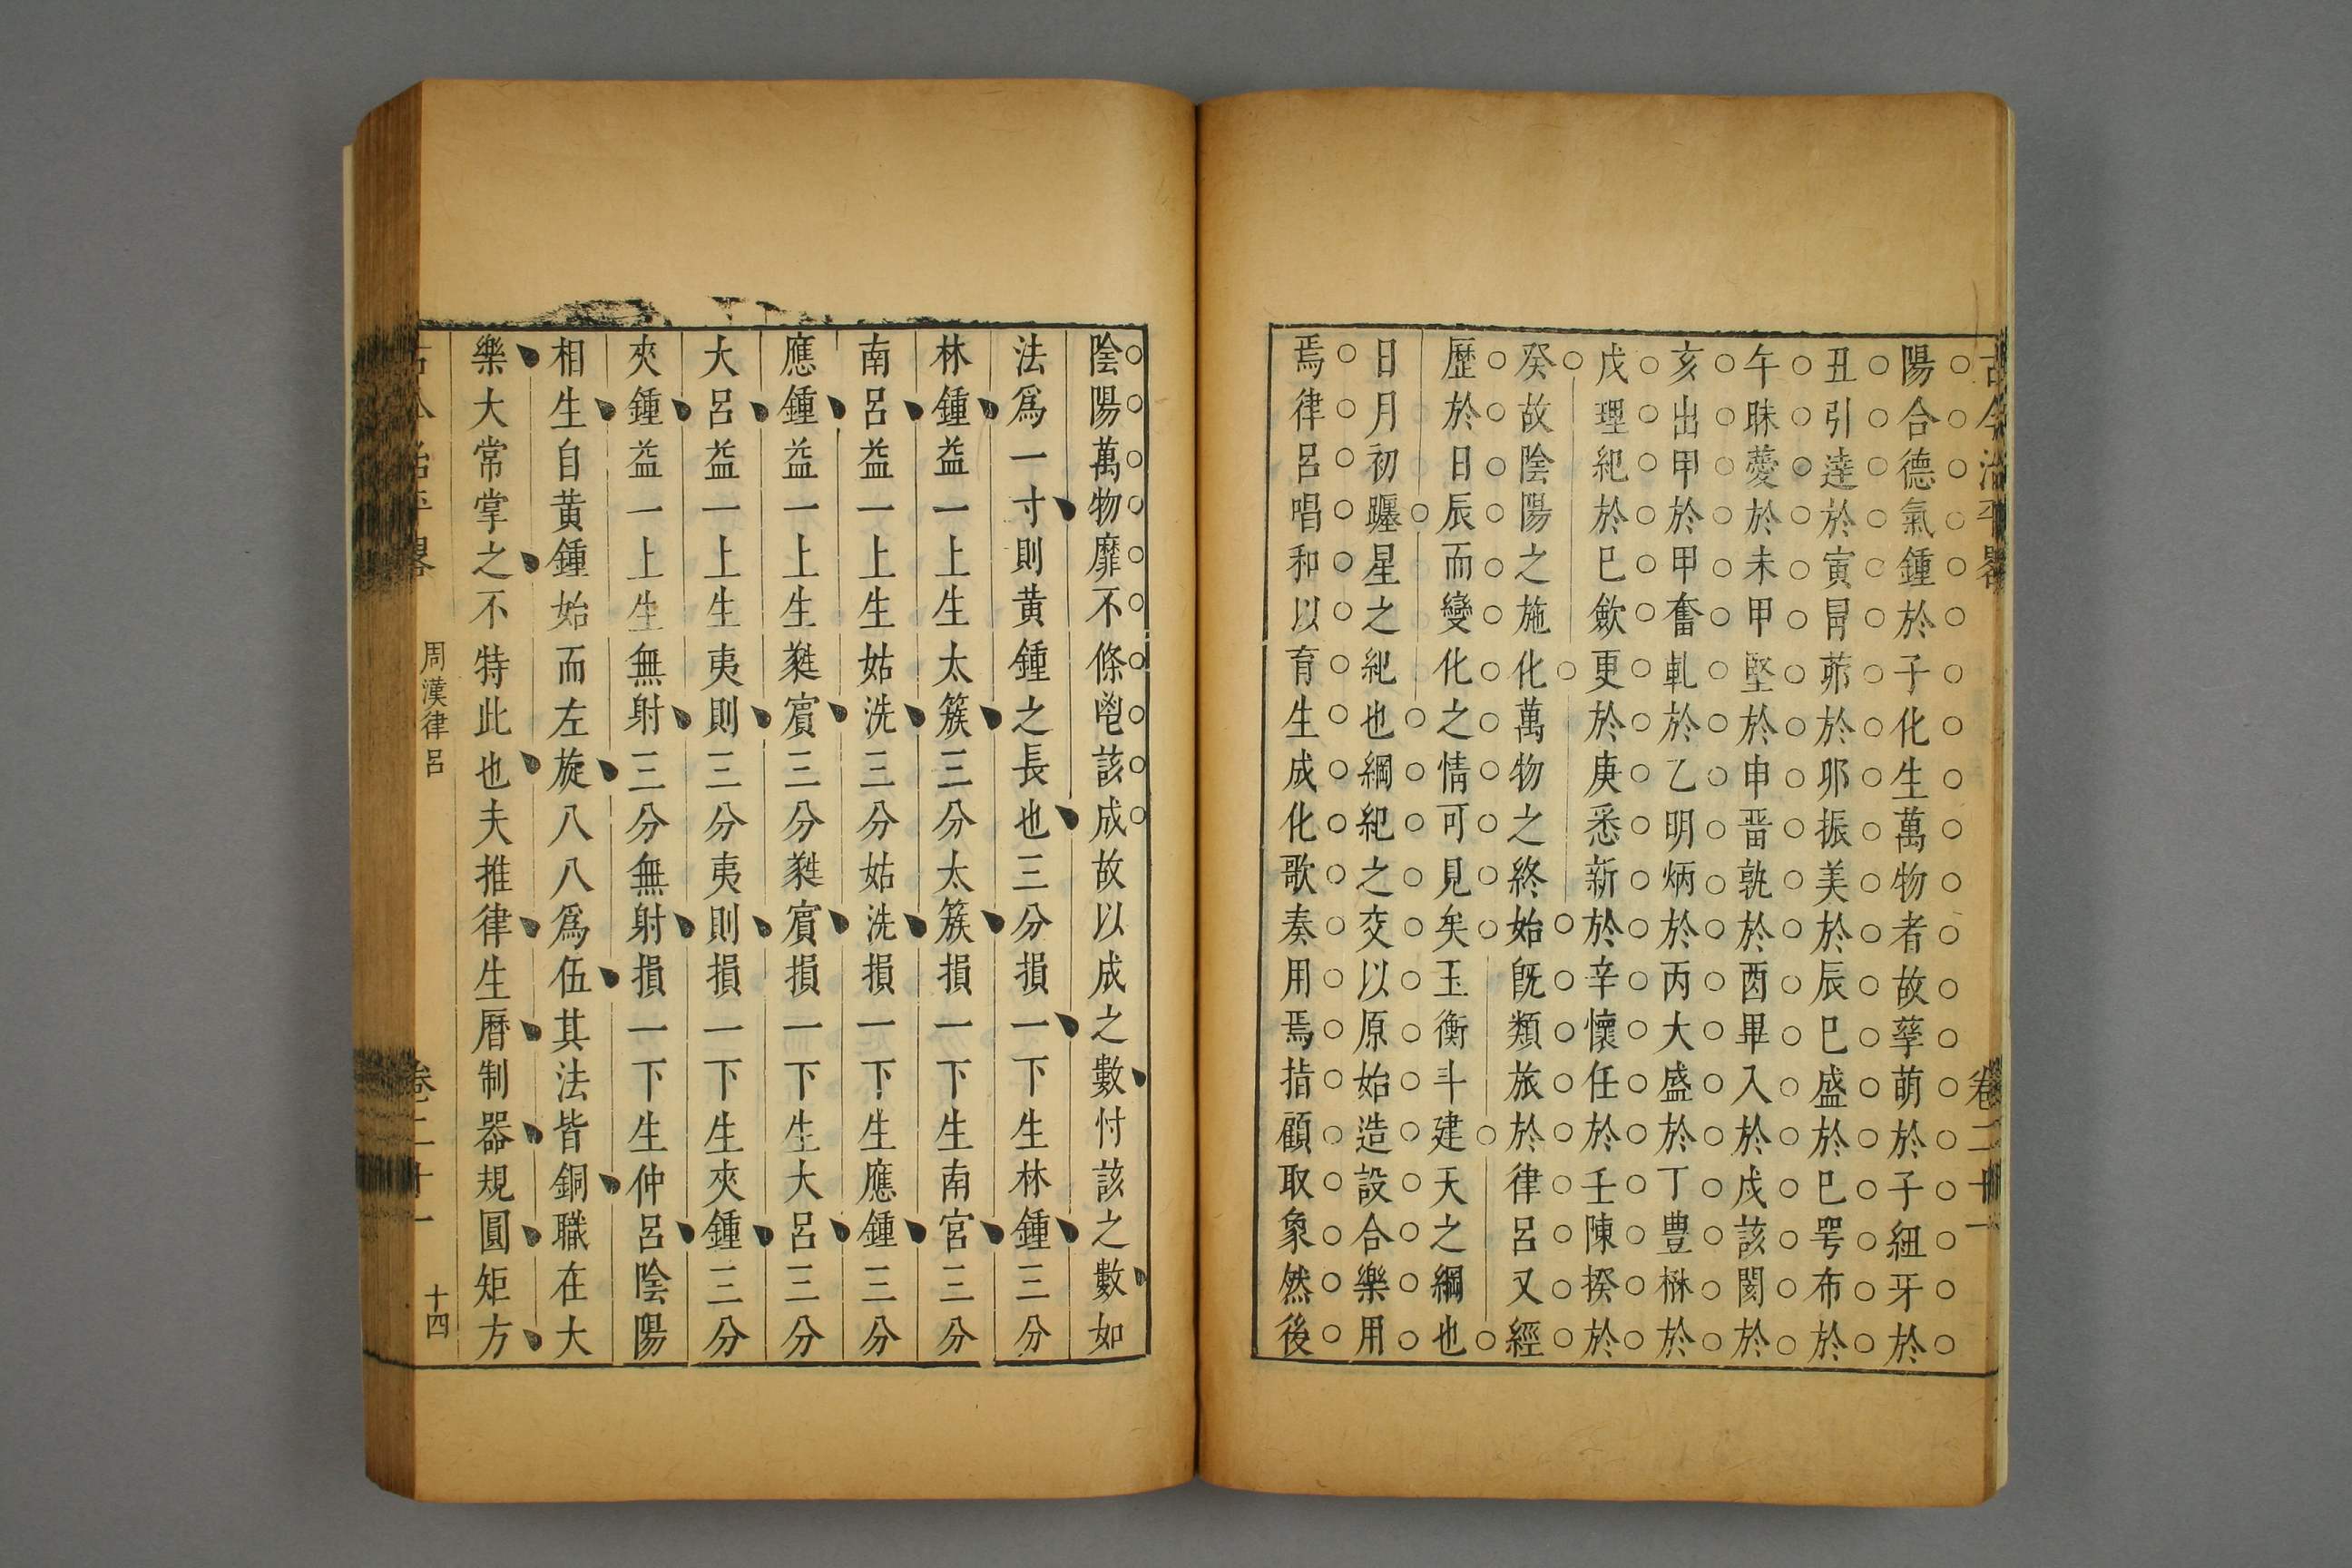 古今治平畧
卷二十一
陽合德氣鍾於子化生萬物者故孳萌於子紐牙於
丑引達於寅冒茆於夘振美於辰巳盛於巳咢布於
午昧薆於未甲堅於申畱孰於酉畢入於戌該閡於
亥出甲於甲奮軋於乙明炳於丙大盛於丁豊楙於
戊理紀於巳斂更於庚悉新於辛懷任於壬陳揆於
癸故陰陽之施化萬物之終始旣類旅於律呂又經
歷於日辰而變化之情可見矣玉衡斗建天之綱也
日月初躔星之紀也綱紀之交以原始造設合樂用
焉律呂唱和以育生成化歌奏用焉指顧取象然後
陰陽萬物靡不條鬯該成故以成之數忖該之數如
法爲一寸則黃鍾之長也三分損一下生林鍾三分
林鍾益一上生太簇三分太簇損一下生南宮三分
南呂益一上生姑洗三分姑洗損一下生應鍾三分
應鍾益一上生蕤賓三分蕤賓損一下生大呂三分
大呂益一上生夷則三分夷則損一下生夾鍾三分
夾鍾益一上生無射三分無射損一下生仲呂陰陽
相生自黃鍾始而左旋八八爲伍其法皆銅職在大
樂大常掌之不特此也夫推律生曆制器規圓矩方
古今治平畧
周漢律呂
卷二十一
十四